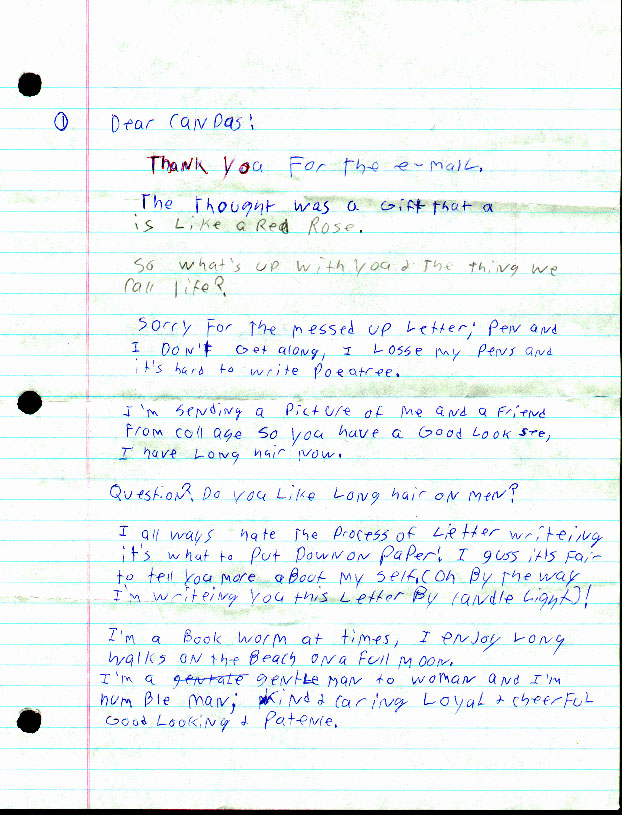 ① Dear CanDas!
Thank You For the e-mail.
The Thought was a Gift that a
is Like a Red Rose.
So what's up with you & The thing we
call life?
Sorry For The messed up Letter; Pen and
I Don't Get along, I Losse my Pens and
it's hard to write Poeatree.
I'm sending a Picture of me and a Friend
From coll age so you have a Good Look see,
I have Long hair Now.
Question? Do you Like Long hair on men?
I all ways hate The Process of Letter writeing
it's what to Put Down on Paper! I guss it's Fair
to tell you more about my self. (Oh By The way
I'm writeing You this Letter By candle Light)!
I'm a Book worm at times, I enjoy Long
walks on the Beach on a Full moon.
I'm a gentale gentle man to woman and I'm
hum Ble man; Kind & caring Loyal & cheerful
Good Looking & Patenie.